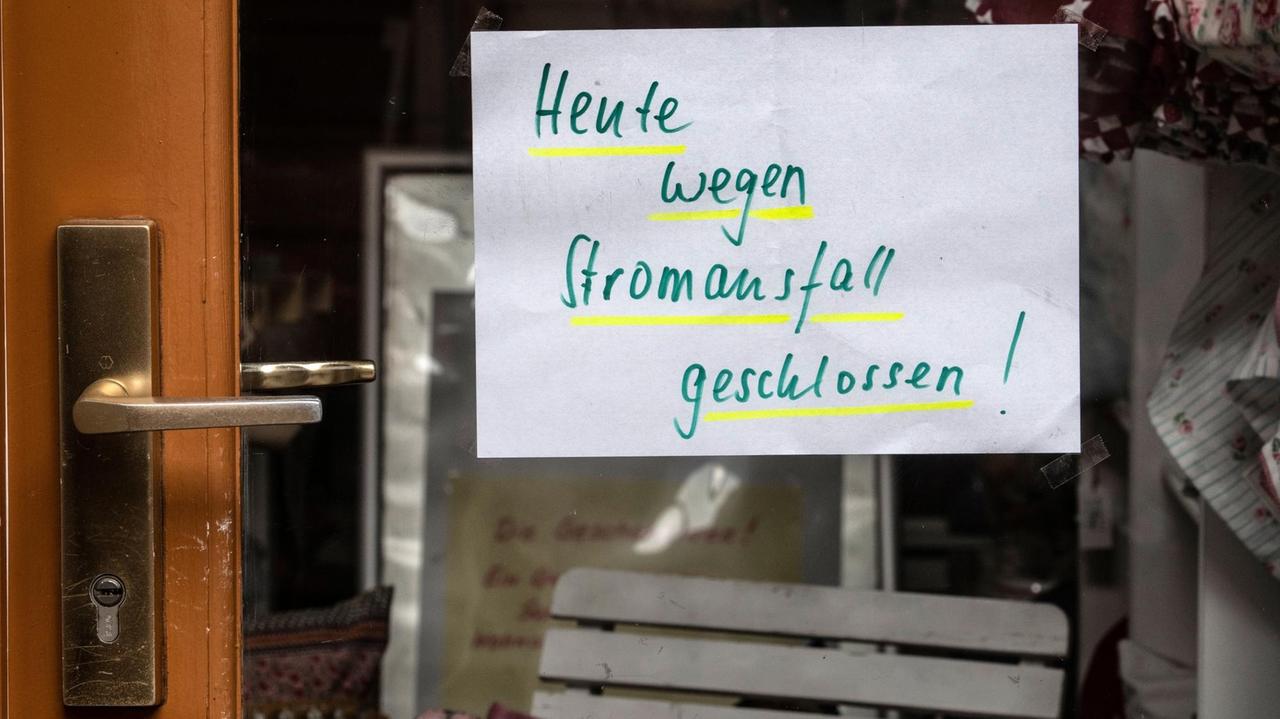 Heute
wegen
Stromausfall
geschlossen!
Die
Ein